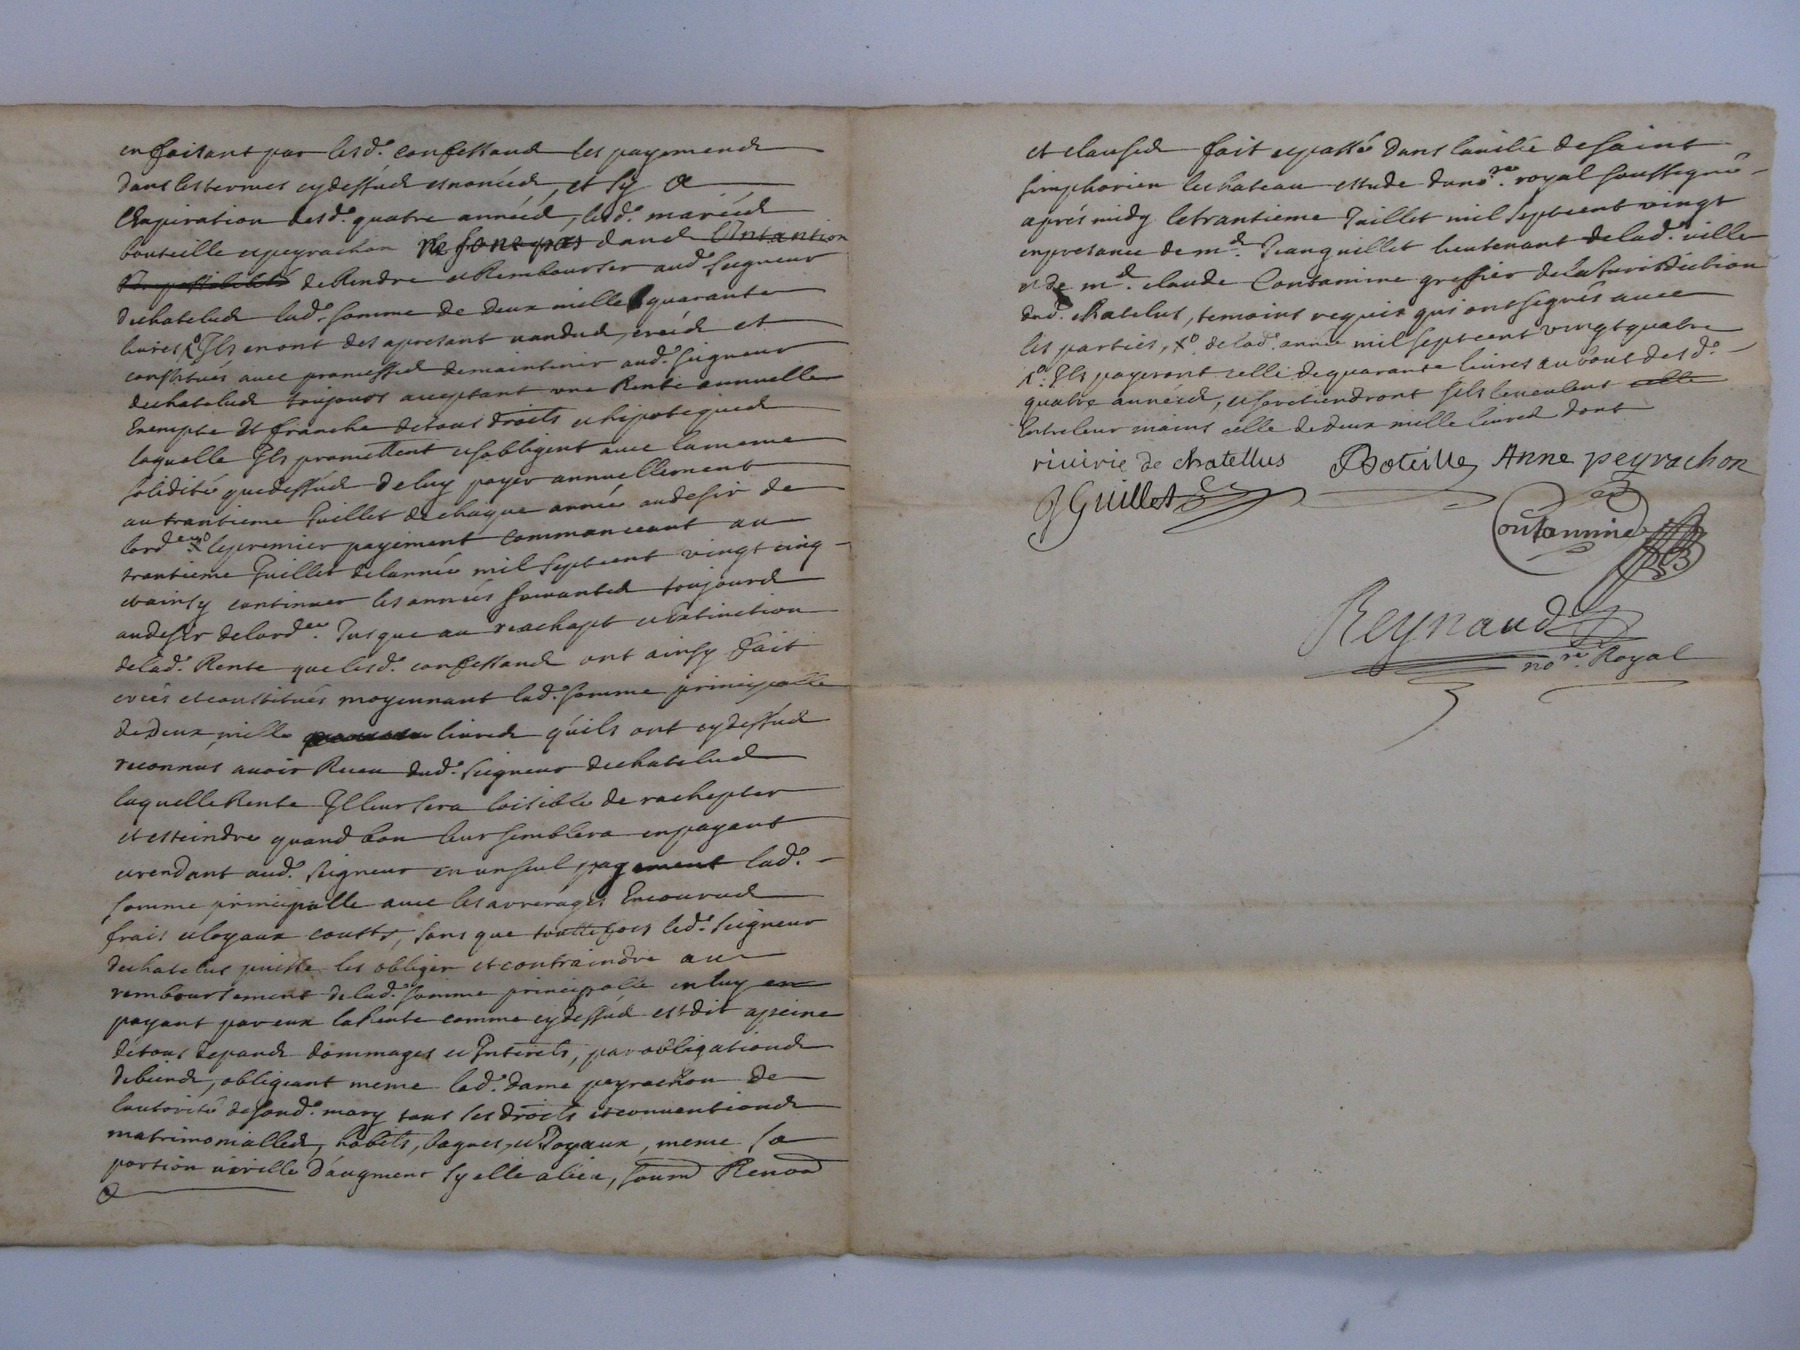 en faisant par lesd. confessans les payemens
dans les termes cy dessus enoncés, et sy a
l'expiration desd. quatre années, lesd. mariés
bouteille et peyrachon ne sont pas dans l'Intantion
de Rendre et Rembourser aud. seigneur
de chatelus lad. somme de deux mille quarante
livres, Ils en ont des apresant vandus, creés et
constitués avec promesses de maintenir aud. seigneur
de chatelus toujours acceptant une Rente annuelle
Exempte et franche de tous droits et hipoteques
laquelle Ils promettent et s'obligent avec la meme
solidité que dessus de luy payer annuellement
au trantieme Juillet de chaque année au desir de
lord.ce le premier payement commanceant au
trantieme Juillet de lannée mil sept cent vingt cinq
et ainsy continuer les années suivantes toujours
au desir de lord.ce Jusque au reachapt et Extinction
de lad. Rente que lesd. confessans ont ainsy fait
creés et constitués moyennant lad. somme principalle
de deux mille livres qu'ils ont cy dessus
reconnus avoir Receu dud. seigneur de chatelus
laquelle Rente Il leur sera loisible de rachepter
et esteindre quand bon leur semblera en payant
et rendant aud. seigneur en un seul payement lad.
somme principalle avec les arrerages Encourus
frais et loyaux coutts, sans que touttefois led. seigneur
de chatelus puisse les obliger et contraindre au
remboursement de lad. somme principalle en luy en
payant par eux la Rente comme cy dessus est dit apeine
de tous depans dommages et Interets, par obligations
de biens, obligeant meme lad. dame peyrachon de
lautorité de sond. mary tous ses droits et conventions
matrimonialles, habits, bagues, et Joyaux, meme sa
portion virille d'augment sy elle a lieu, soum Renon
et clauses fait et passé dans la ville de saint
simphorien le chateau estude du no.re royal soussigné
aprés midy le trantieme Juillet mil sept cent vingt
en presance de m.e Jean guillet lieutenant de lad. ville
et de m.e claude Contamine greffier de la Jurisdiction
dud. chatelus, temoins requis qui ont signés avec
les parties, xo. de lad. année mil sept cent vingt quatre
xo. Ils payeront celle de quarante livres au bout desd.
quatre années, et seretiendront sils le veulent celle
Entre leur mains celle de deux mille livres dont
riuirie de chatellus Boteille Anne peyrachon
J Guillet
Contamine
Reynaud
no.re Royal